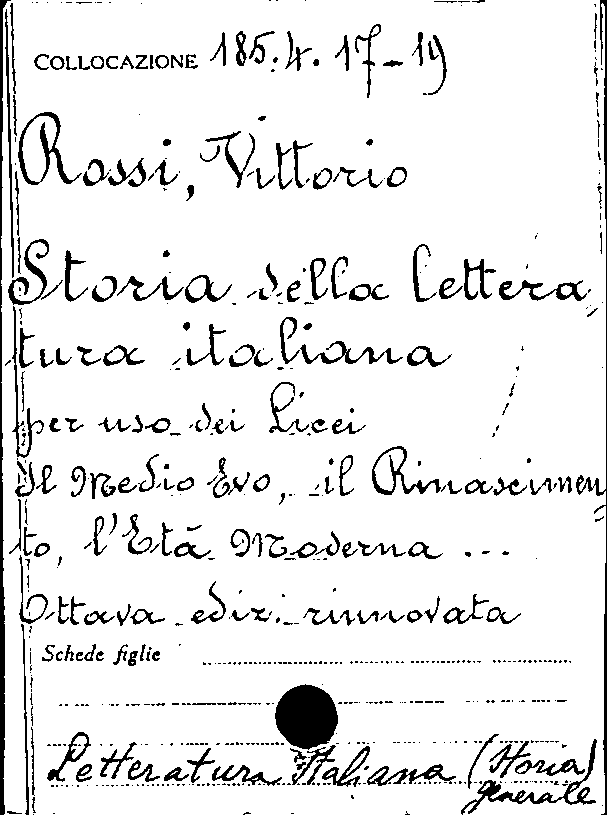 COLLOCAZIONE 185.4.17-19
Rossi, Vittorio
Storia della lettera=
tura italiana
per uso dei Licei
Il Medio Evo, il Rinascimen=
to, l'Età Moderna ...
Ottava ediz. rinnovata
Schede figlie
Letteratura Italiana (Storia)
generale